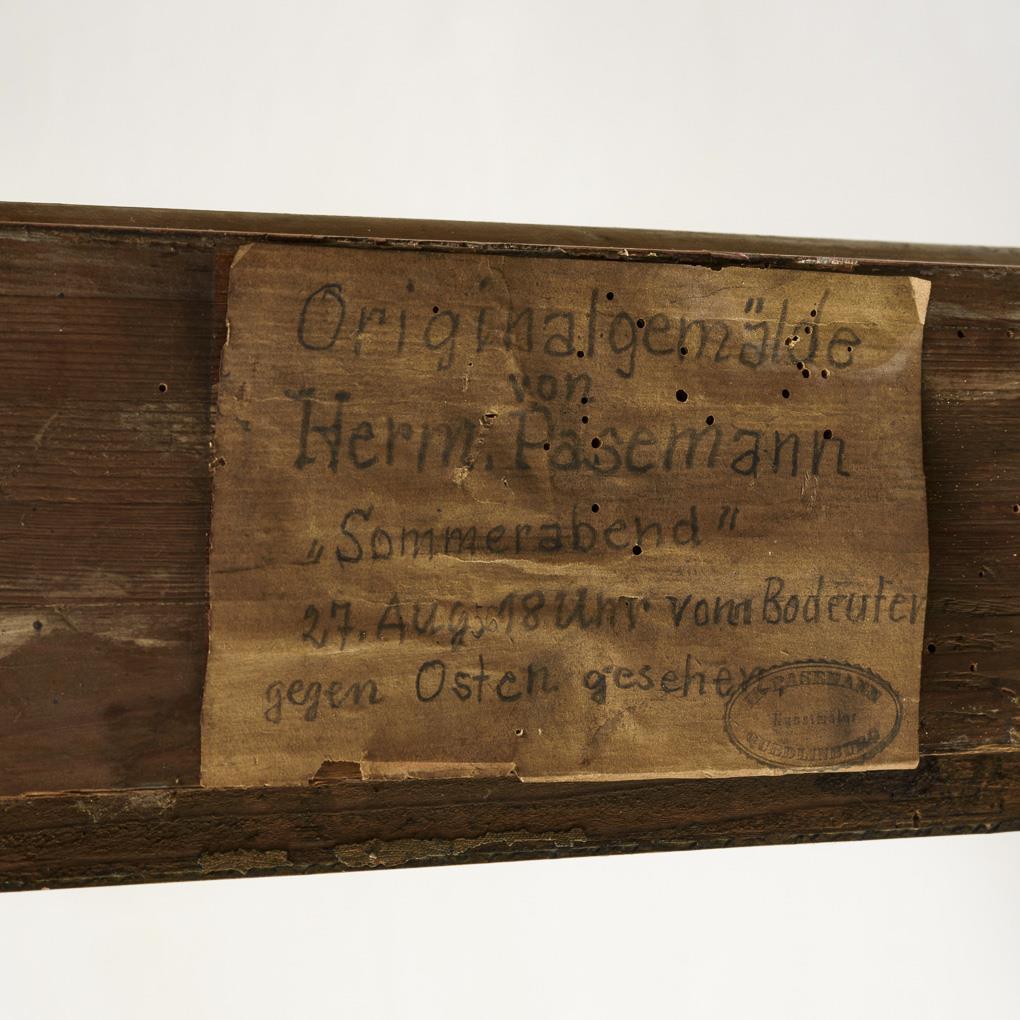 Originalgemälde
von
Herm. Pasemann
„Sommerabend"
27. Aug. 18 Uhr vom Bodeufer
gegen Osten gesehen
PASEMANN
Kunstmaler
QUEDLINBURG